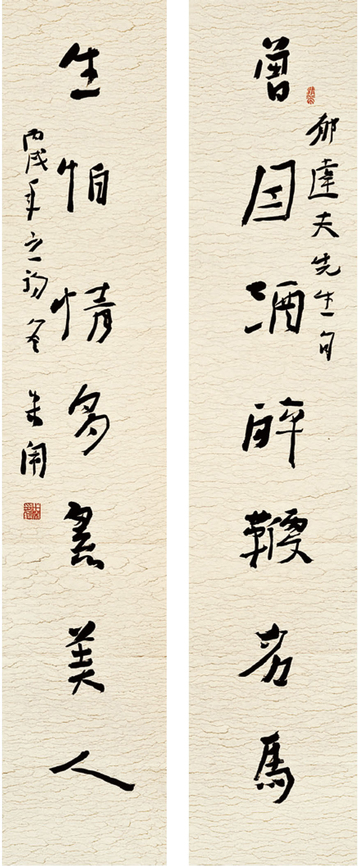 郁達夫先生句
曾因酒醉鞭名馬
生怕情多累美人
丙戌年之初冬 朱